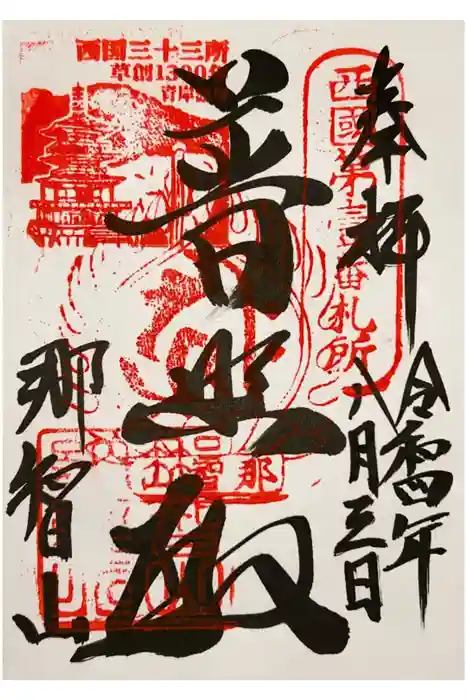 奉拝
令和四年
八月三日
普照殿
那智山
西国三十三所
草創1300年
西國第壹番札所
那智山